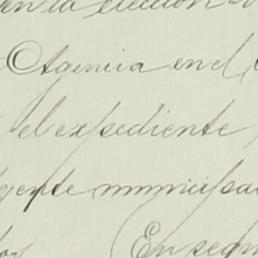 en la elección
Agencia en el
el expediente
gente municipal
En segu